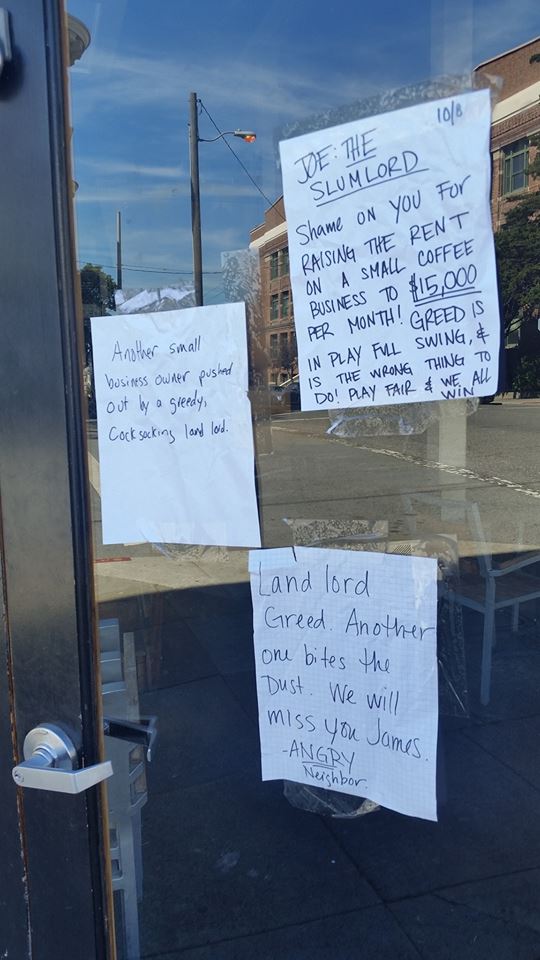 10/8
JOE: THE
SLUMLORD
Shame ON YOU FOR
RAISING THE RENT
ON A SMALL COFFEE
BUSINESS TO $15,000
PER MONTH! GREED IS
IN PLAY FULL SWING, &
IS THE WRONG THING TO
DO! PLAY FAIR & WE ALL
WIN
Another small
business owner pushed
out by a greedy,
Cocksocking land lord.
Land lord
Greed. Another
one bites the
Dust. We will
miss you James.
-ANGRY
Neighbor.